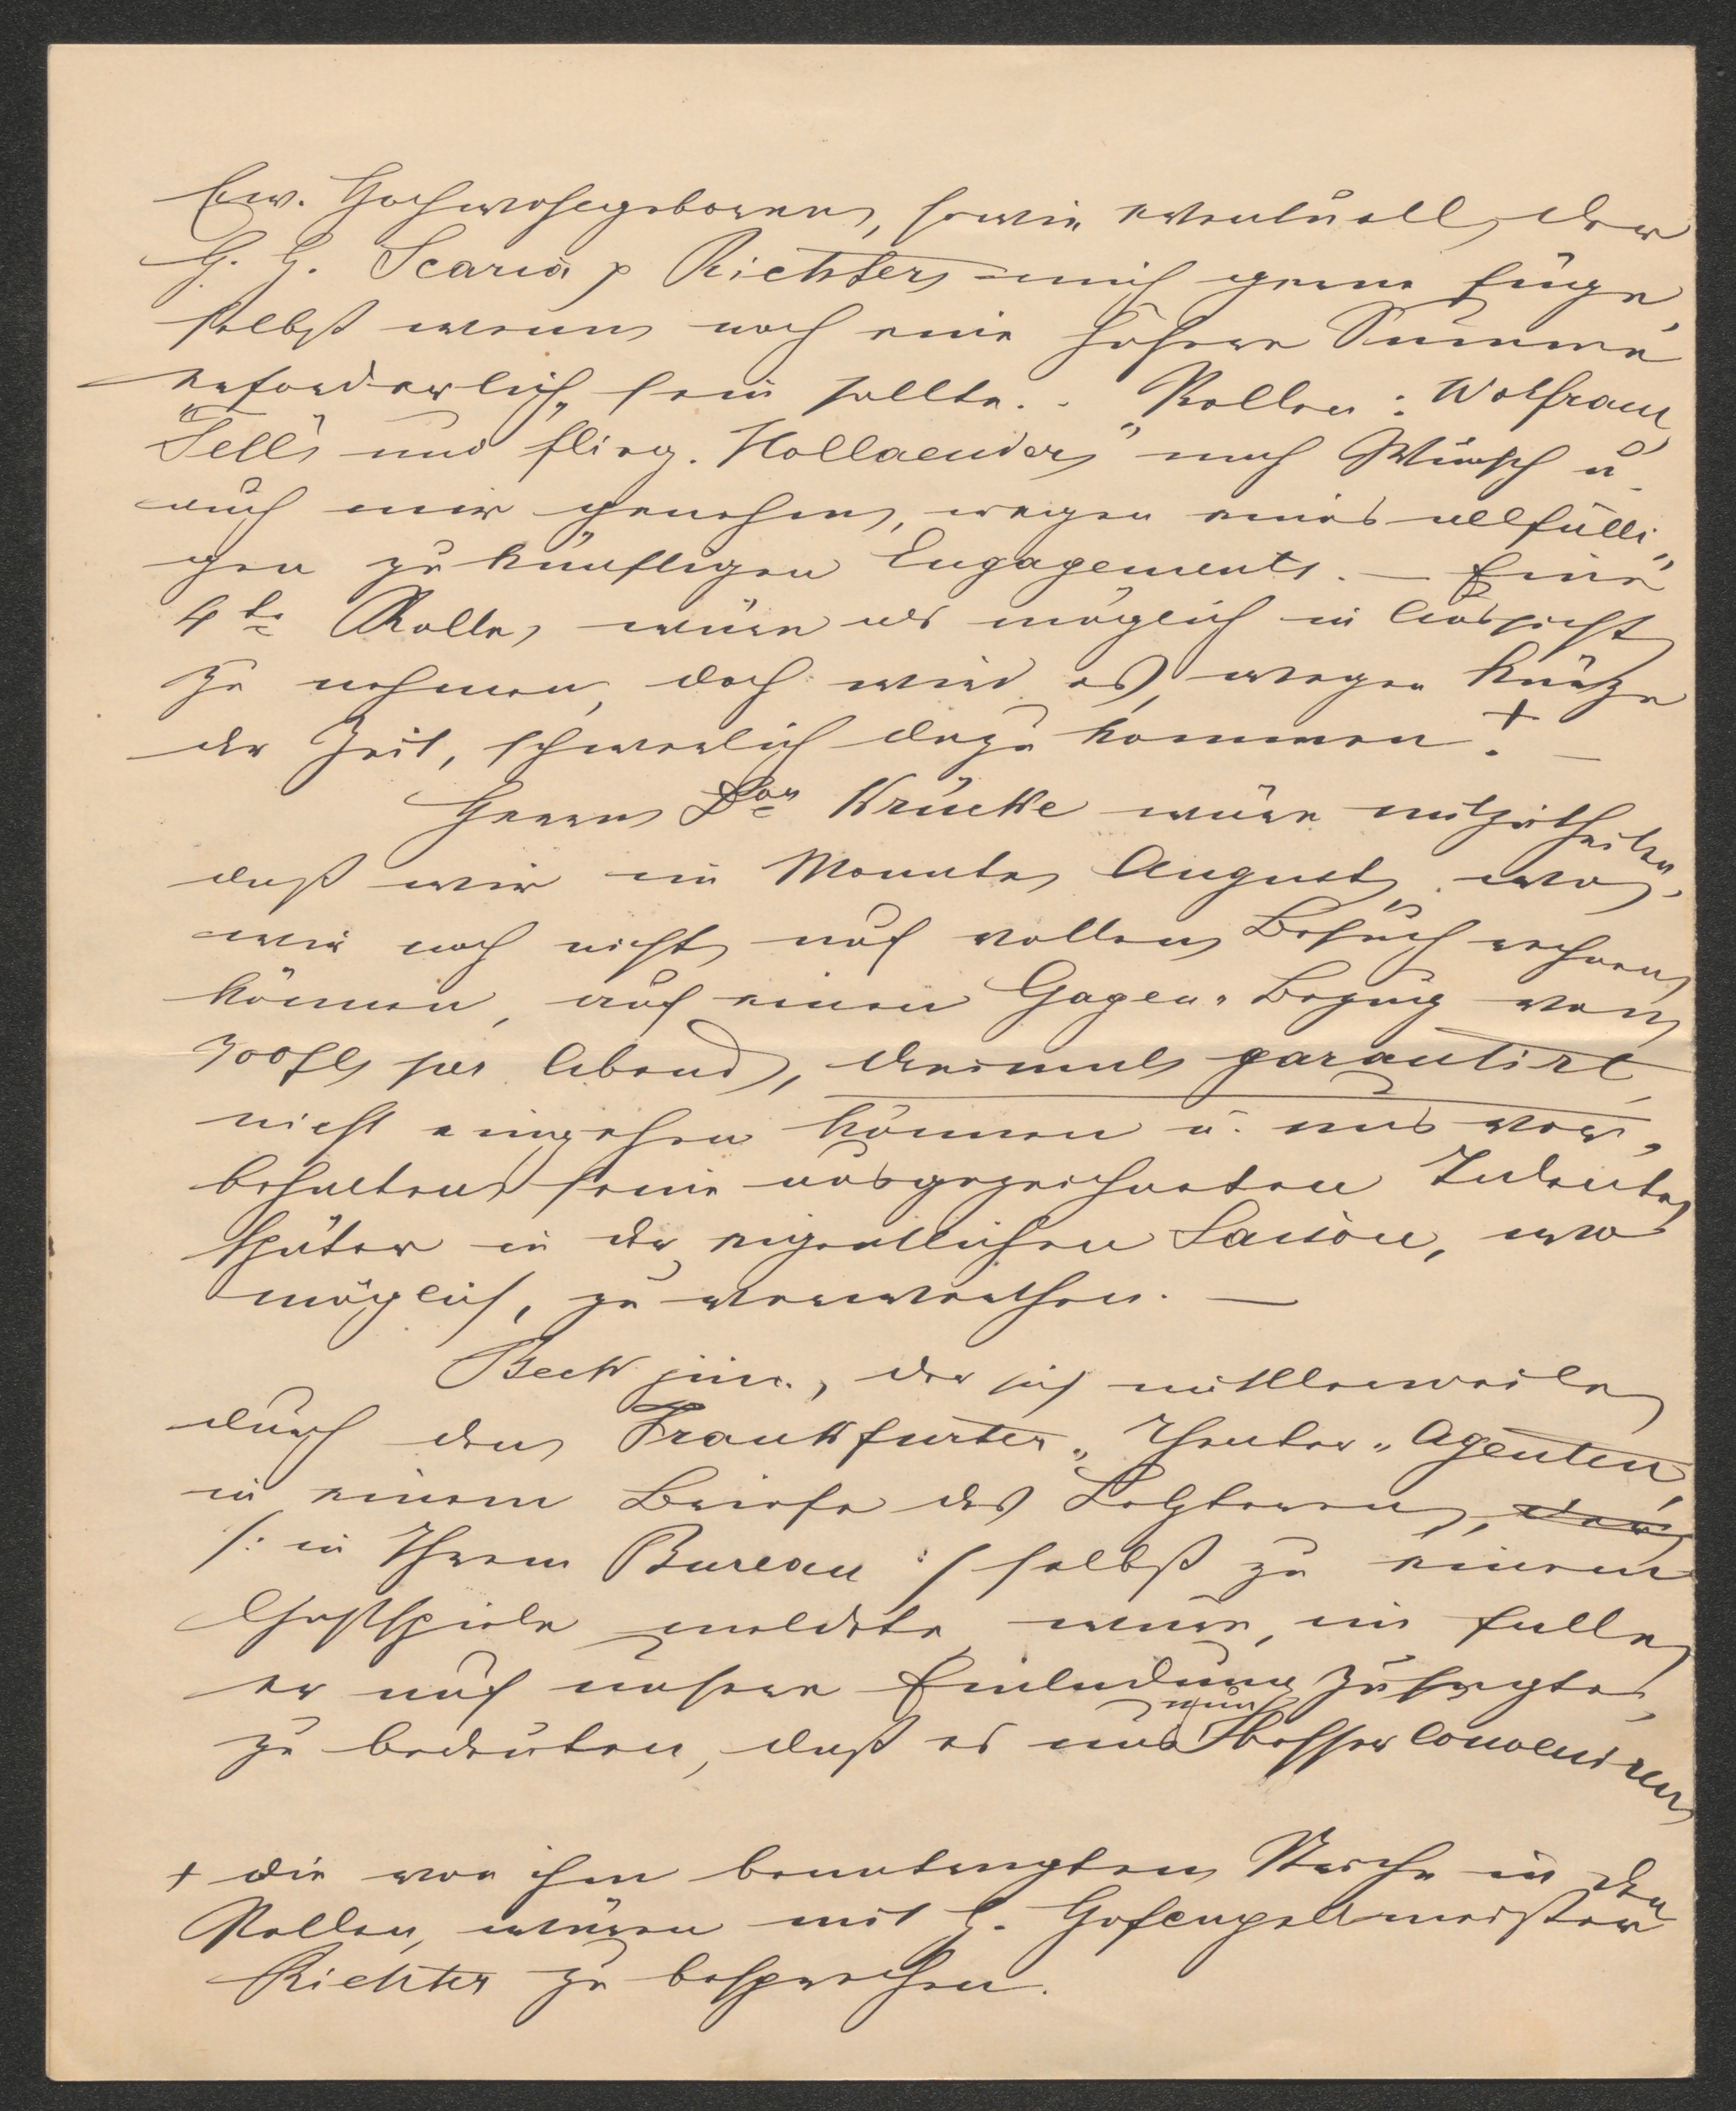 Ew. Hochwohlgeboren, sowie eventuell der
H. H. Scaria p Richter, mich gerne füge,
selbst wenn noch eine höhere Summe
erforderlich sein sollte. . Rollen: Wolfram,
"Tell" und "flieg. Hollaender" nach Wunsch u.
auch mir genehm, wegen eines allfälli-
gen zukünftigen Engagements. — Eine
4te Rolle, wäre als möglich in Aussicht
zu nehmen, doch wird es, wegen Kürze
der Zeit, schwerlich dazu kommen. + —
Herrn Dor Krückl wäre mitzutheilen,
daß wir im Monate August, wo
wir noch nicht auf vollen Besuch rechnen
können, auf einen Gagen-Bezug von
300 fl, per Abend, dreimal garantirt
nicht eingehen können u. uns vor-
behalten seine ausgezeichneten Talente
später in der eigentlichen Saison, wo
möglich, zu verwerthen. —
Beck jun., der sich mittlerweile
durch den Frankfurter-Theater-Agenten,
in einem Briefe des Letzteren,
/: in Ihrem Bureau :/ selbst zu einem
Gastspiele meldete, wäre, im Falle
er auf unsere Einladung zusagte,
zu bedeuten, daß es uns nun besser conveniren
+ die von ihm beantragten Striche in den
Rollen, wären mit H. Hofcapellmeister
Richter zu besprechen.